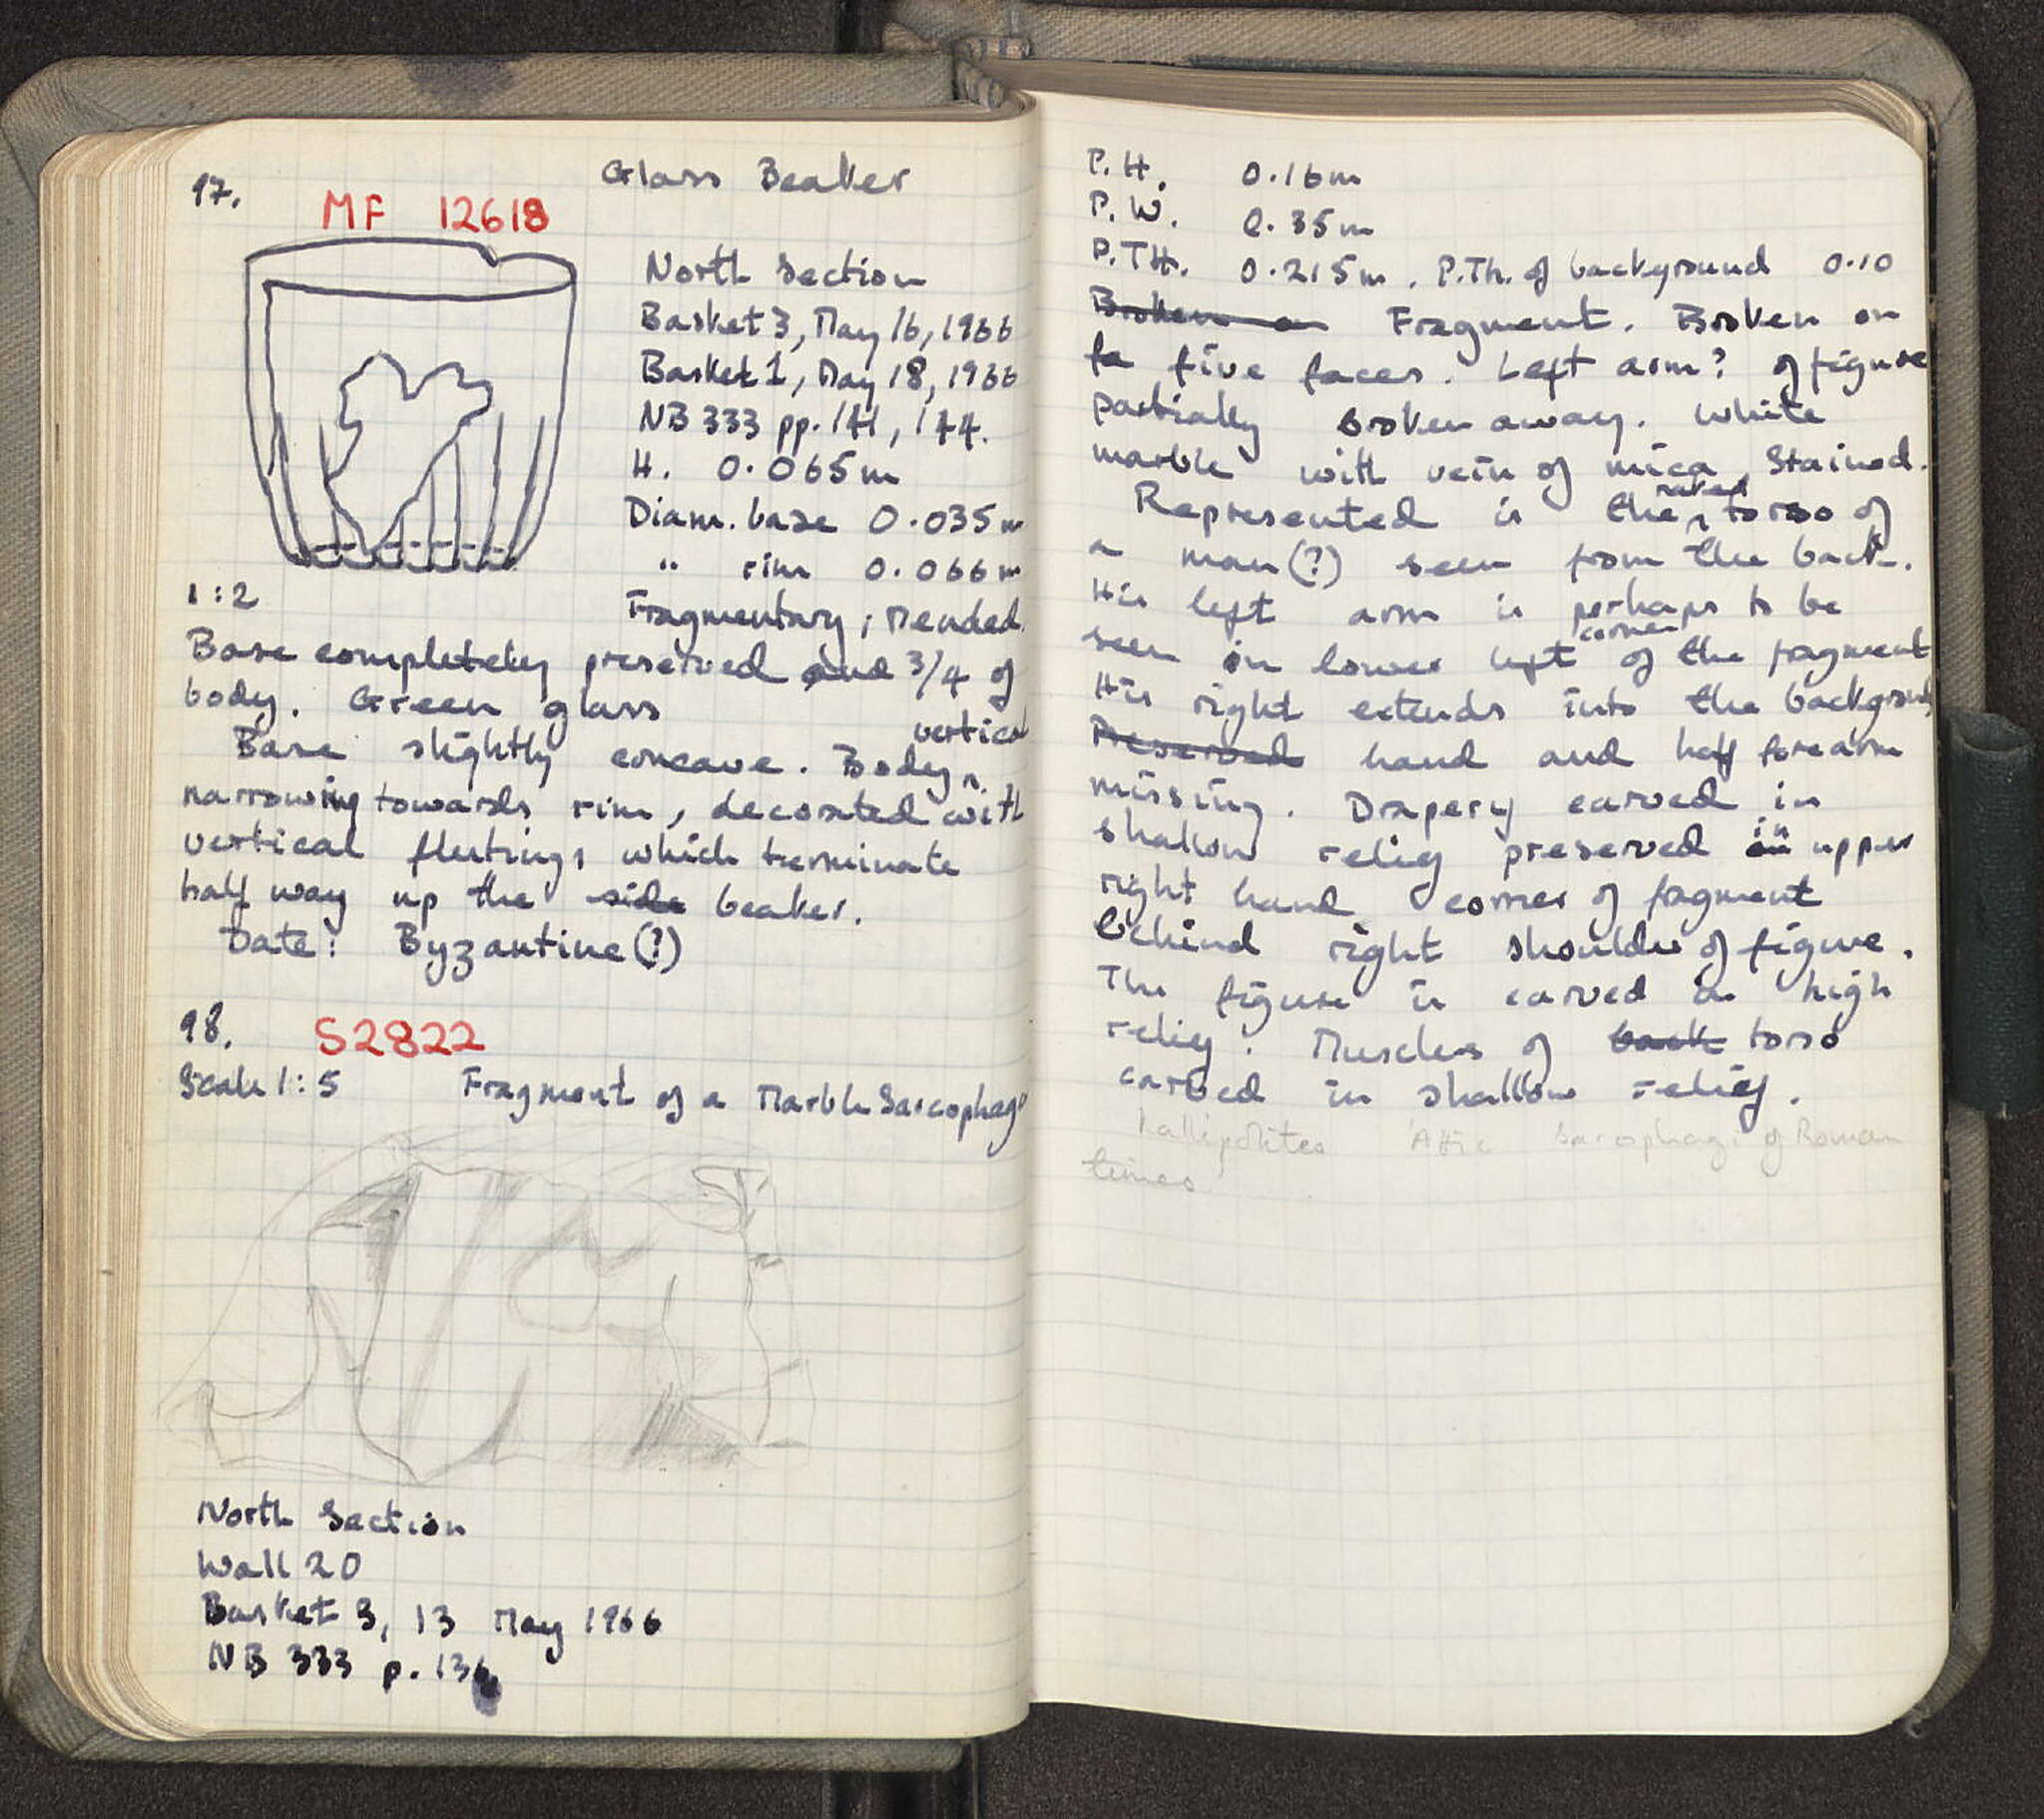 97.
Glass Beaker
MF 12618
North Section
Basket 3, May 16, 1966
Basket 1, May 18, 1966
NB 333 pp. 141, 144.
H. 0.065m
Diam. base 0.035m
" rim 0.066m
1:2
Fragmentary; Mended.
Base completely preserved and 3/4 of
body. Green glass
Base slightly concave. Body vertical
narrowing towards rim, decorated with
vertical flutings which terminate
half way up the side beaker.
Date: Byzantine(?)
98. S2822
Scale 1:5 Fragment of a Marble Sarcophag
North Section
Wall 20
Basket 3, 13 May 1966
NB 333 p. 136
P. H. 0.16m
P. W. 0.35m
P.TH. 0.215m. P.Th. of background 0.10
Broken on Fragment. Broken on
fa five faces. Left arm? of figure
partially broken away. White
marble with vein of mica, Stained.
Represented is the naked torso of
a man(?) seen from the back.
His left arm is perhaps to be
seen in lower left corner of the fragment
His right extends into the background
Preserved hand and half forearm
missing. Drapery carved in
shallow relief preserved in upper
right hand corner of fragment
behind right shoulder of figure.
The figure is carved in high
relief. Muscles of back torso
carved in shallow relief.
Kallipolites Attic Sarcophagi of Roman
times